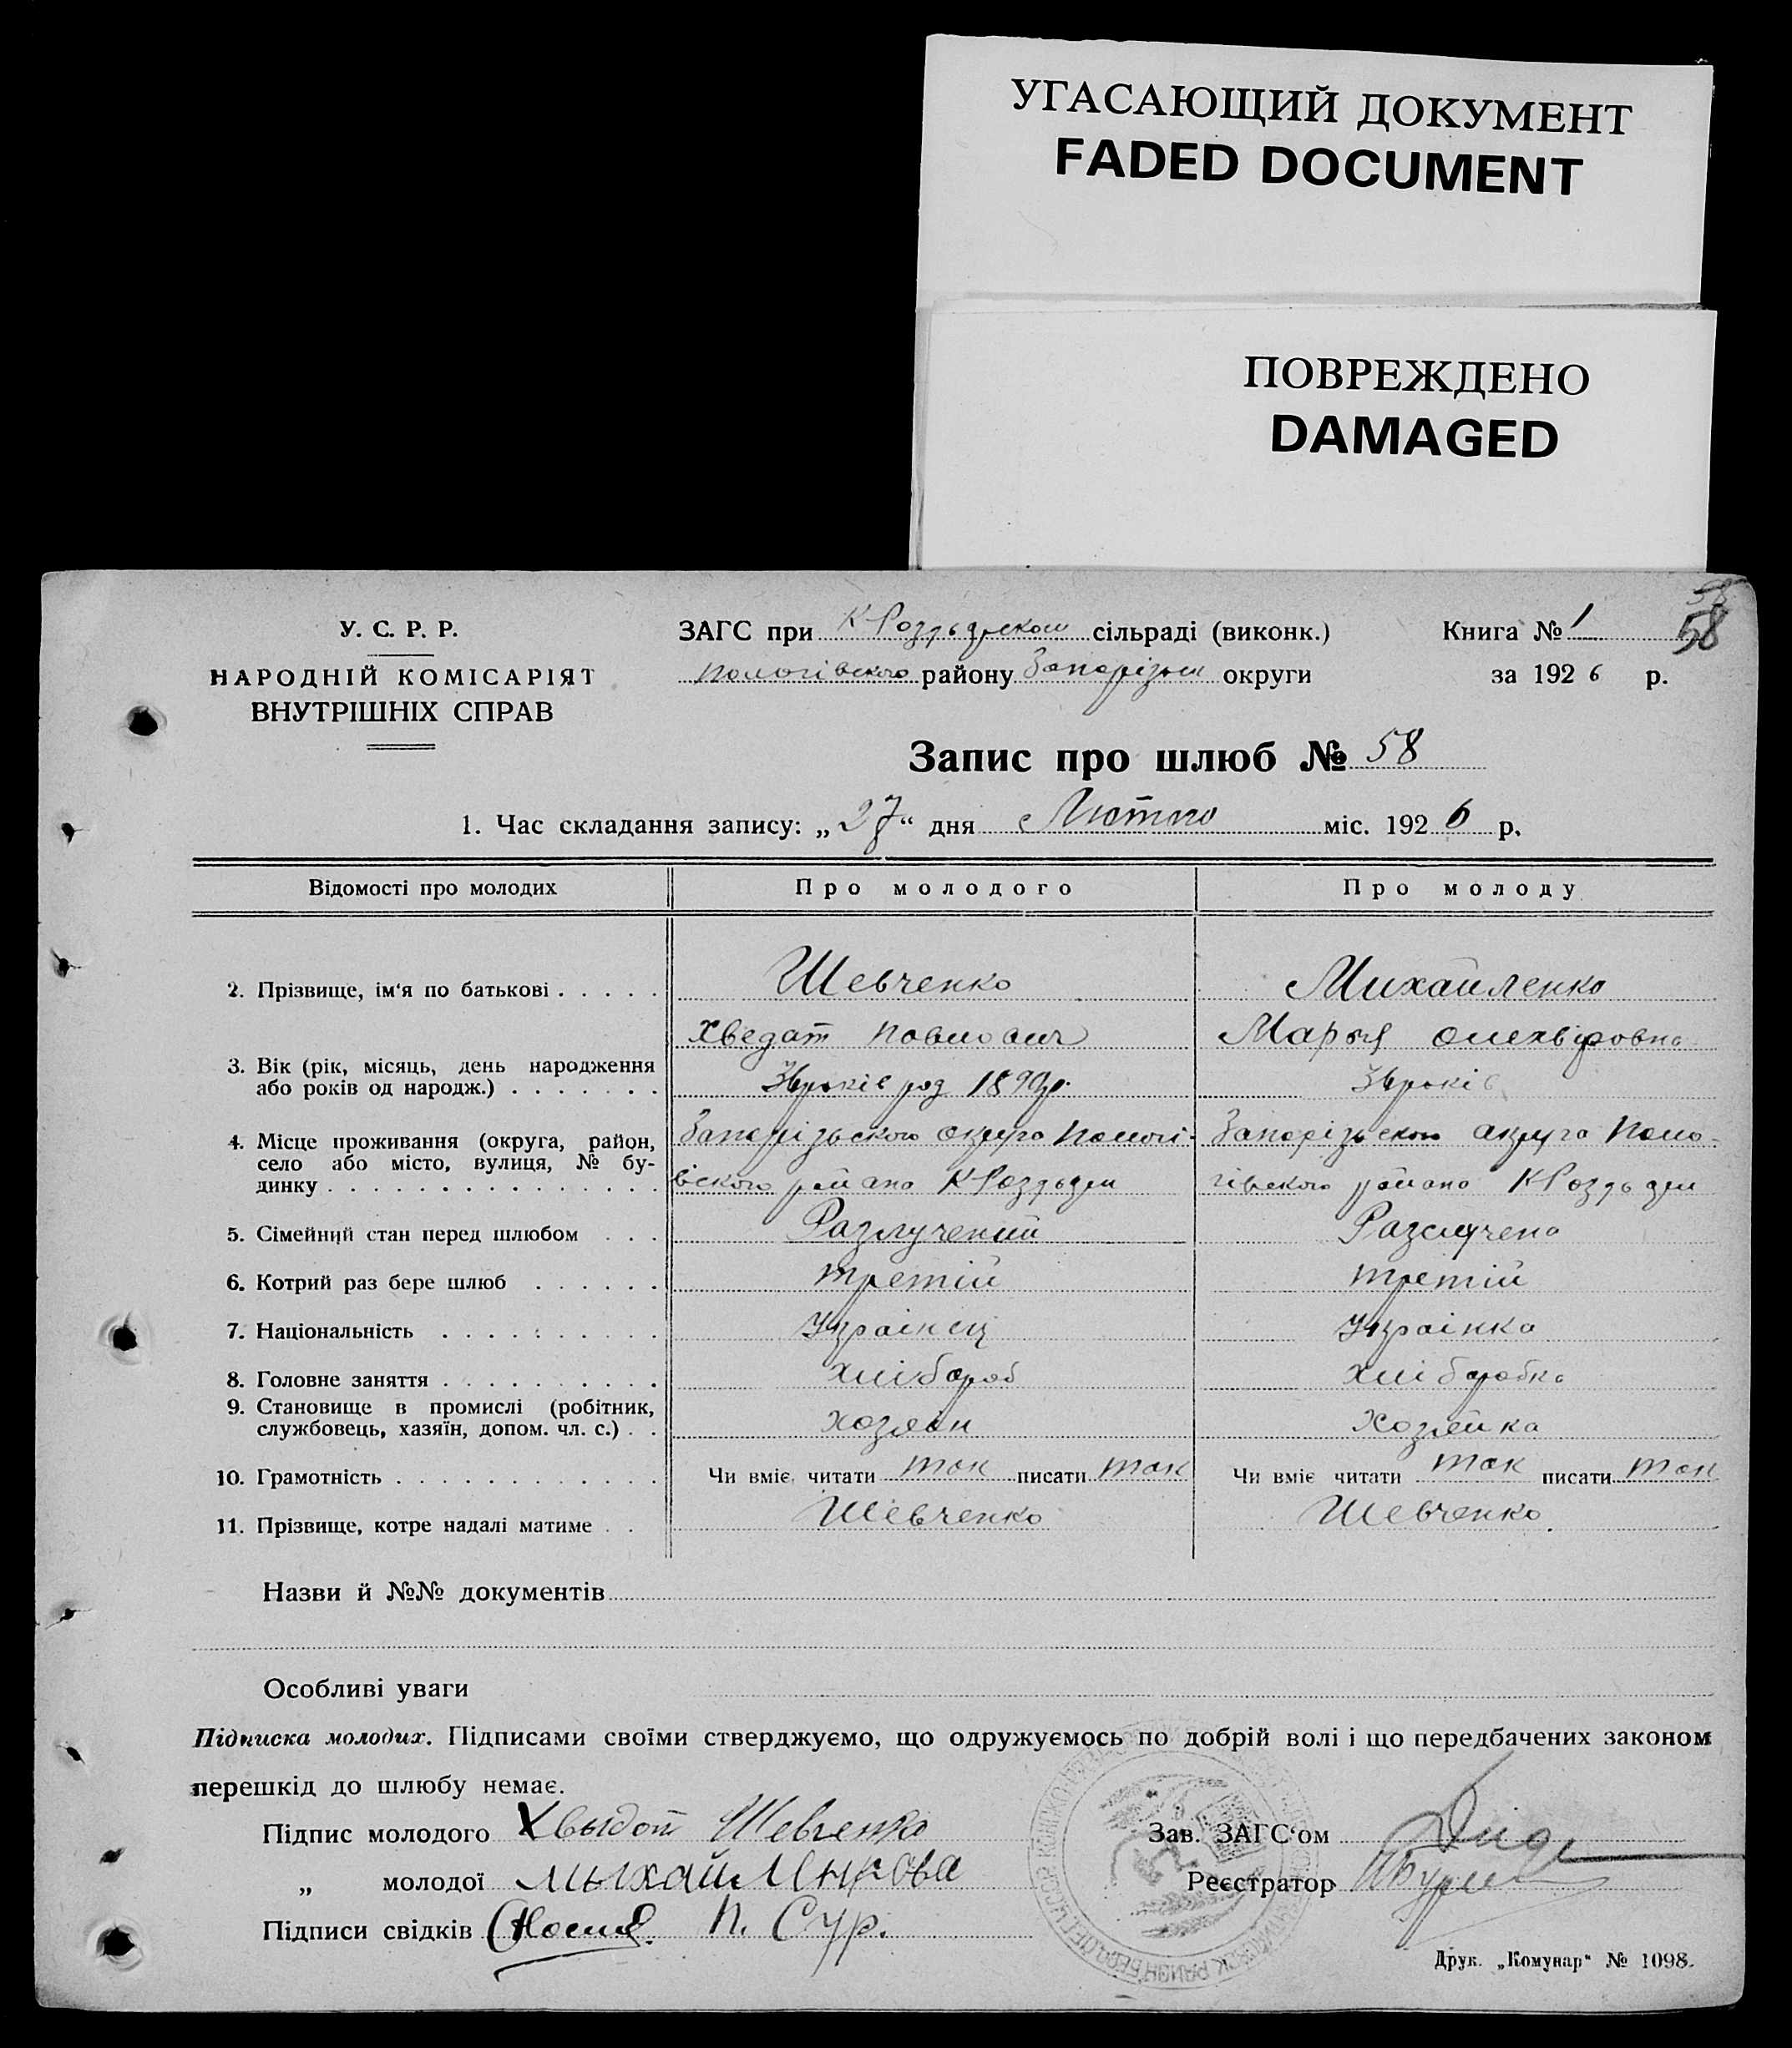 УГАСАЮЩИЙ ДОКУМЕНТ
FADED DOCUMENT
ПОВРЕЖДЕНО
DAMAGED
58
У. С. Р. Р.
НАРОДНІЙ КОМІСАРІЯТ
ВНУТРІШНІХ СПРАВ
ЗАГС при сільраді (виконк.)
Пологівского району округи
Книга № 1
за 1926 р.
Запис про шлюб № 58
1. Час складання запису: „27“ дня Лютого міс. 1926 р.
Відомості про молодих
Про молодого
Про молоду
2. Прізвище, ім'я по батькові
Шевченко
Хведат Павлович
Михайленко
Марья
3. Вік (рік, місяць, день народження
або років од народж.)
років род
років
4. Місце проживання (округа, район,
село або місто, вулиця, № бу-
динку
Запорізьского округа Пологі-
вского района
Запорізьского округа Поло-
гівского района
5. Сімейний стан перед шлюбом
Разлучений
Разлучена
6. Котрий раз бере шлюб
третій
третій
7. Національність
Украінец
Украінка
8. Головне заняття
Хлібороб
Хліборобка
9. Становище в промислі (робітник,
службовець, хазяїн, допом. чл. с.)
хозяін
Хозяйка
10. Грамотність
Чи вміє читати так писати так
Чи вміє читати так писати так
11. Прізвище, котре надалі матиме
Шевченко
Шевченко
Назви й №№ документів
Особливі уваги
Підписка молодих. Підписами своїми стверджуємо, що одружуємось по добрій волі і що передбачених законом
перешкід до шлюбу немає.
Підпис молодого Хвыдот Шевченко
„ молодої
Підписи свідків П. Сур.
Зав. ЗАГС'ом
Реєстратор
Друк. „Комунар“ № 1098.